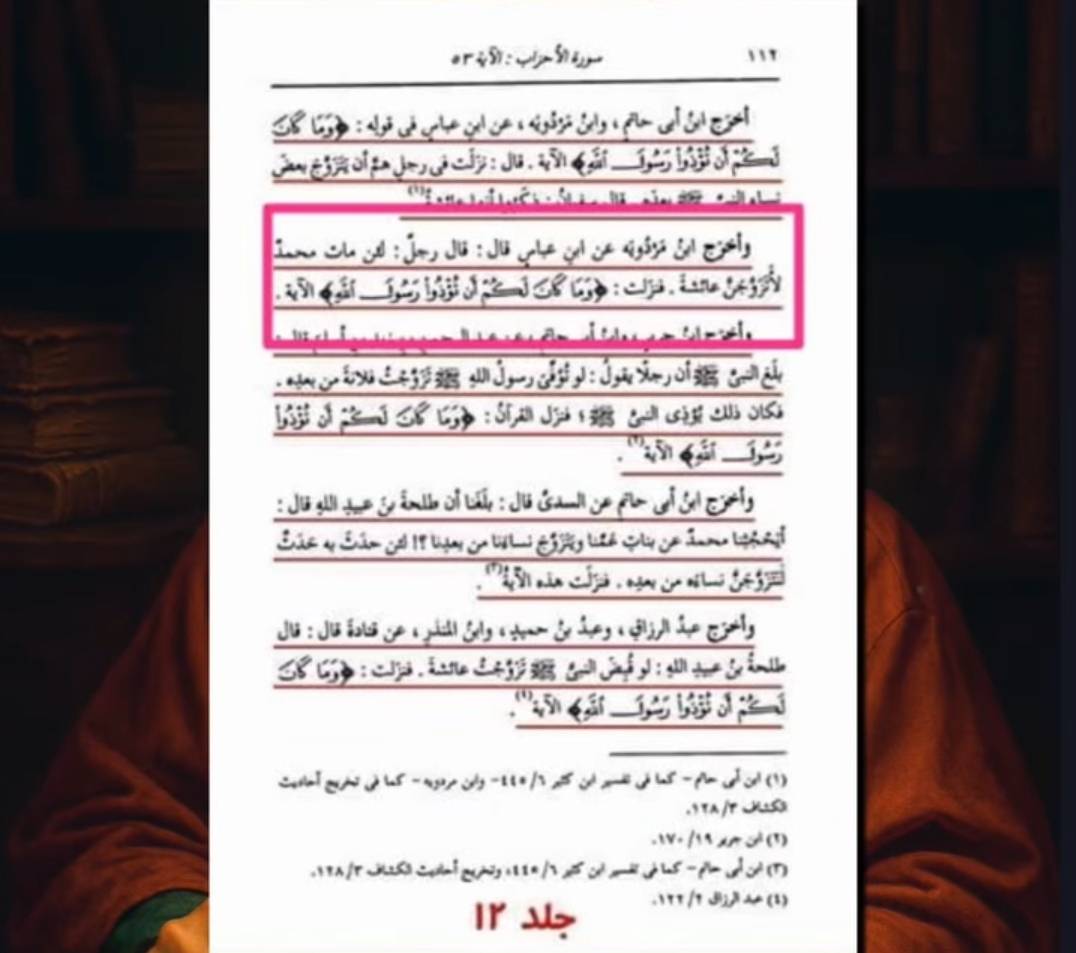 ١١٢
سورة الأحزاب : الآية ٥٣
أخرَج ابنُ أبى حاتمٍ ، وابنُ مَرْدُويَه ، عن ابنِ عباسٍ فى قولِه : ﴿وَمَا كَانَ
لَكُمْ أَن تُؤْذُوا رَسُولَ ٱللَّهِ﴾ الآية . قال : نزَلَت فى رجلٍ همَّ أن يتزَوَّجَ بعضَ
نساءِ النبىِّ ﷺ بعدَه . قال سفيانُ : ذكَرُوا أنها عائشةُ(١)
وأخرَج ابنُ مَرْدُويَه عن ابنِ عباسٍ قال : قال رجلٌ : لئن مات محمدٌ
لأَتَزَوَّجَنَّ عائشةَ . فنزَلت : ﴿وَمَا كَانَ لَكُمْ أَن تُؤْذُوا رَسُولَ ٱللَّهِ﴾ الآية .
وأخرَج ابنُ جريرٍ ، وابنُ أبى حاتمٍ ، عن عبدِ الرحمنِ بنِ زيدِ بنِ أسلمَ قال :
بلَغ النبىَّ ﷺ أن رجلًا يقولُ : لو تُوُفِّىَ رسولُ اللهِ ﷺ تَزَوَّجْتُ فلانةَ من بعدِه .
فكان ذلك يُؤْذِى النبىَّ ﷺ ؛ فنزَل القرآنُ : ﴿وَمَا كَانَ لَكُمْ أَن تُؤْذُوا
رَسُولَ ٱللَّهِ﴾ الآية(٢) .
وأخرَج ابنُ أبى حاتمٍ عن السدىِّ قال : بلَغَنا أن طلحةَ بنَ عبيدِ اللهِ قال :
أيَحْجُبُنا محمدٌ عن بناتِ عَمِّنا ويَتَزَوَّجُ نساءَنا من بعدِنا ؟! لئن حدَث به حَدَثٌ
لَنَتَزَوَّجَنَّ نساءَه من بعدِه . فنزَلت هذه الآيةُ(٣) .
وأخرَج عبدُ الرزاقِ ، وعبدُ بنُ حميدٍ ، وابنُ المنذرِ ، عن قتادةَ قال : قال
طلحةُ بنُ عبيدِ اللهِ : لو قُبِضَ النبىُّ ﷺ تَزَوَّجْتُ عائشةَ . فنزَلت : ﴿وَمَا كَانَ
لَكُمْ أَن تُؤْذُوا رَسُولَ ٱللَّهِ﴾ الآية(٤) .
(١) ابن أبى حاتم - كما فى تفسير ابن كثير ٦/ ٤٤٥- وابن مردويه - كما فى تخريج أحاديث
الكشاف ٣/ ١٢٨.
(٢) ابن جرير ١٩/ ١٧٠.
(٣) ابن أبى حاتم - كما فى تفسير ابن كثير ٦/ ٤٤٥، وتخريج أحاديث الكشاف ٣/ ١٢٨.
(٤) عبد الرزاق ٢/ ١٢٢.
جلد ١٢